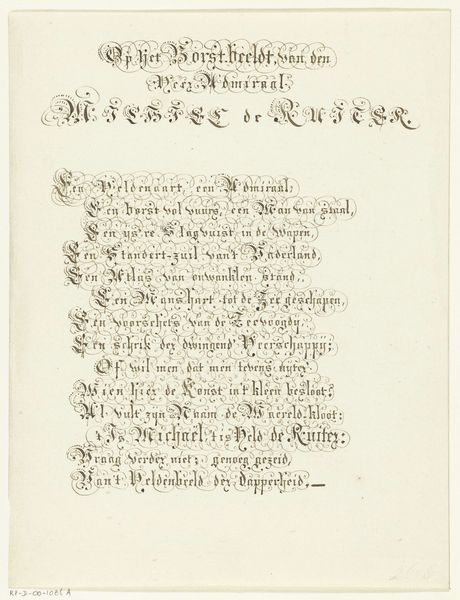 Op Het Borst-beeldt, van den
Heer Admiraal
MICHIEL de RUITER.
Een Heldenaart, een Admiraal,
Een borst vol vuurs, een Man van staal,
Een ys're Slagvuist in de wapen,
Een Standert-zuil van't Vaderland,
Een Atlas van onwanklen stand,
Een Manshart tot de Zee geschapen,
Een voorschets van de Zeevoogdy,
Een schrik der dwingend' Heerschappy;
Of wil men, dat men tevens uyte,
Wien hier de Konst in't kleen besloot?
Al vult zyn Naam de Waereld-kloot:
't Is Michael 't is Held de Ruiter:
Vraag verder niet: genoeg gezeid,
Van't Heldenbeeld der Dapperheid.
RP-D-00-1086 A